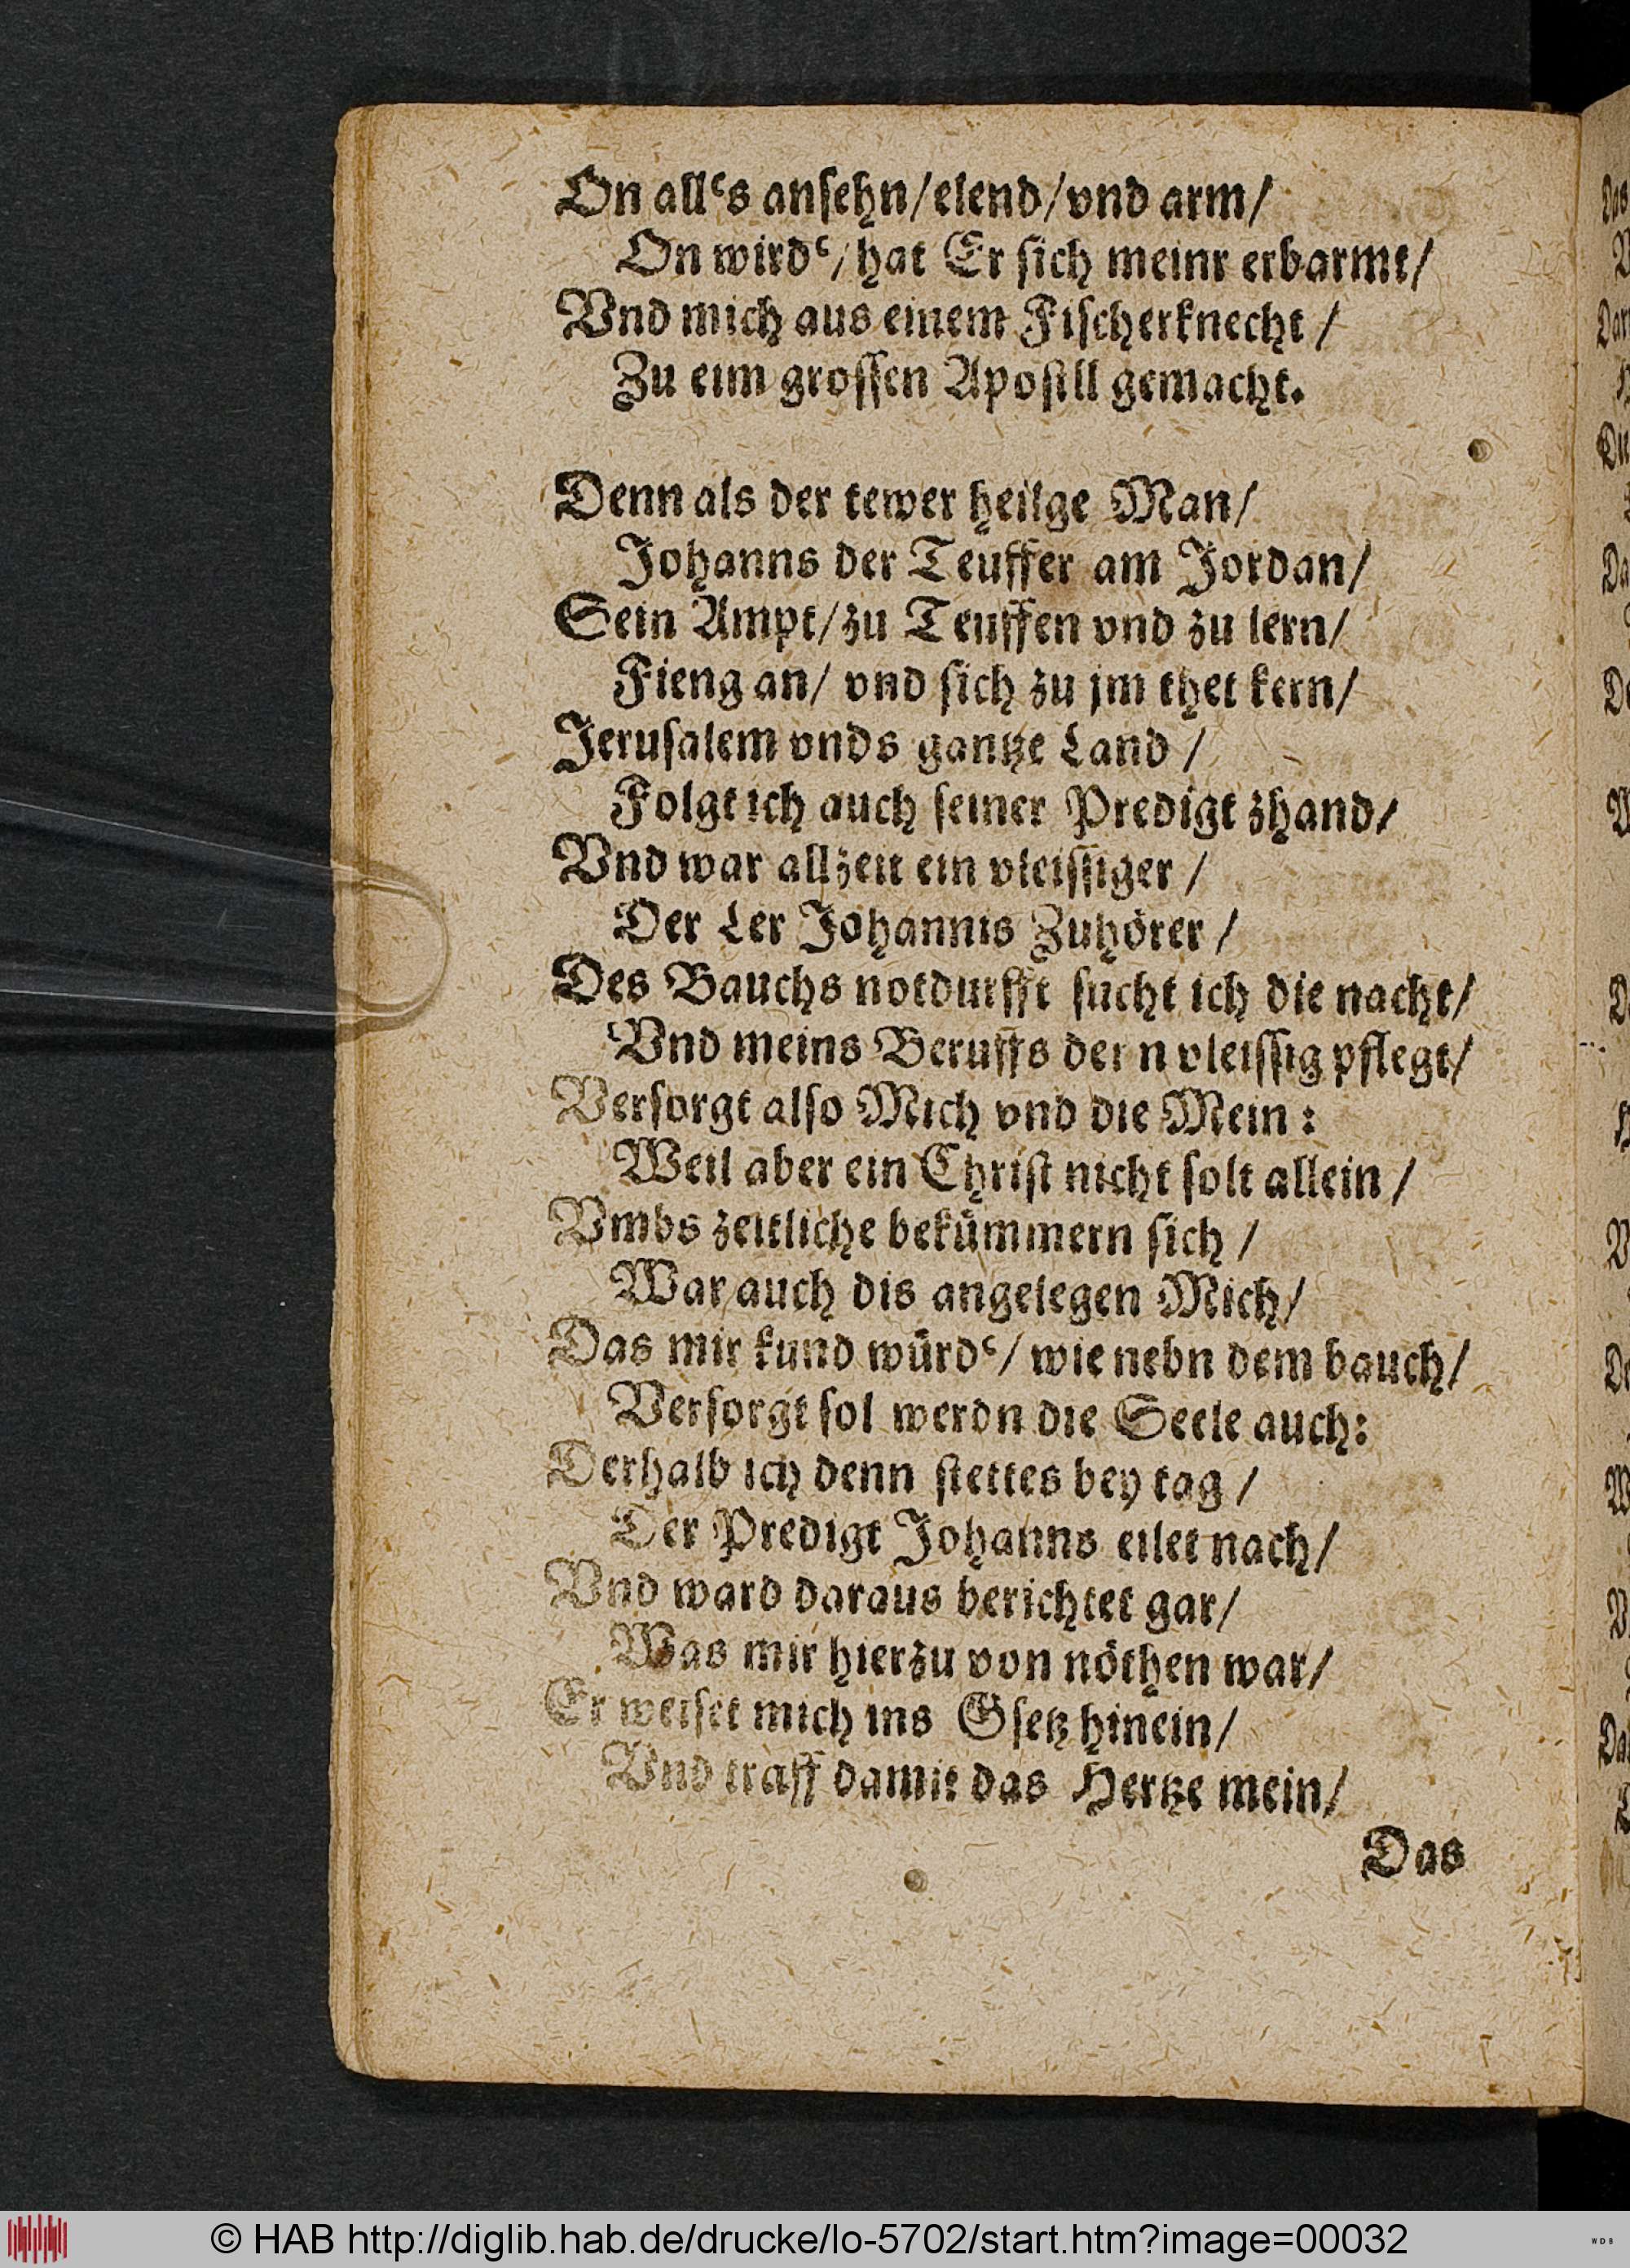 On all‘s ansehn/elend/vnd arm/
On wird‘/hat Er sich meinr erbarmt/
Vnd mich aus einem Fischerknecht /
Zu eim grossen Apostll gemacht.
Denn als der tewer heilge Man/
Johanns der Teuffer am Jordan/
Sein Ampt/zu Teuffen vnd zu lern/
Fieng an/ vnd sich zu jm thet kern/
Jerusalem vnds gantze Land /
Folgt ich auch seiner Predigt zhand/
Vnd war allzeit ein vleissiger /
Der Ler Johannis Zuhörer /
Des Bauchs notdurfft sucht ich die nacht/
Vnd meins Beruffs dern vleissig pflegt/
Versorgt also Mich vnd die Mein :
Weil aber ein Christ nicht solt allein /
Vmbs zeitliche bekümmern sich /
War auch dis angelegen Mich/
Das mir kund würd‘/ wie nebn dem bauch/
Versorgt sol werdn die Seele auch:
Derhalb ich denn stettes bey tag /
Der Predigt Johanns eilet nach/
Vnd ward daraus berichtet gar/
Was mir hierzu von nöthen war/
Er weiset mich ins Gsetz hinein/
Vnd traff damit das Hertze mein/
Das
© HAB http://diglib.hab.de/drucke/lo-5702/start.htm?image=00032
WDB